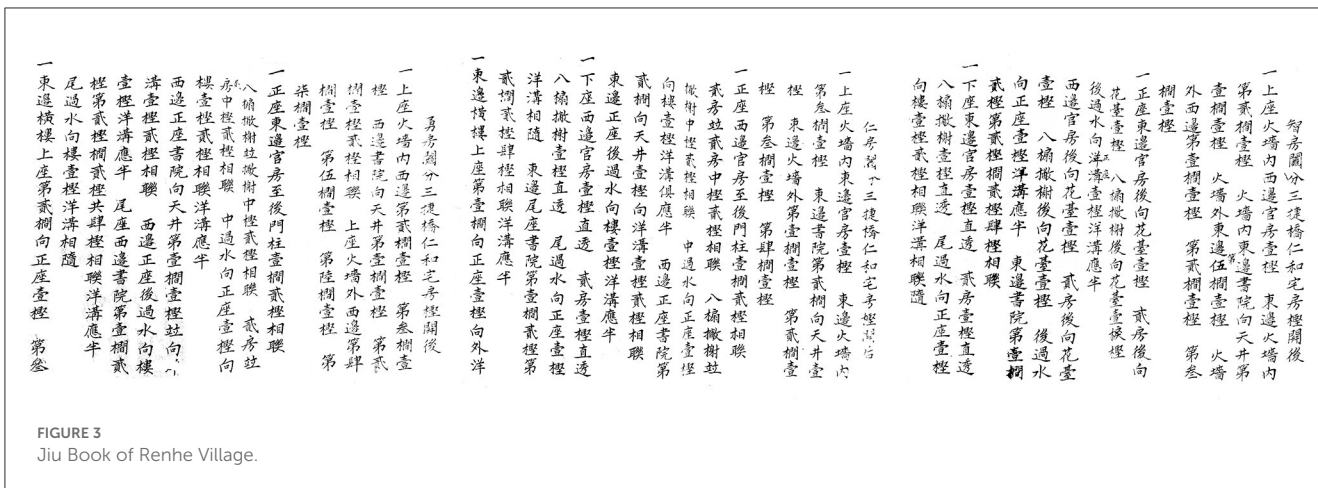 智房鬮分三捷橋仁和宅房樫開後
一上座火墻內西邊官房壹樫　東邊火墻內
第貳櫊壹樫　火墻內東邊書院向天井第
壹櫊壹樫　火墻外東邊第伍櫊壹樫　火墻
外西邊第壹櫊壹樫　第貳櫊壹樫　第叁
櫊壹樫
一正座東邊官房後向花臺壹樫　貳房後向
花臺壹樫　八搧撖榭後向花臺壹樫
後過水向洋溝壹樫洋溝應半
西邊官房後向花臺壹樫　貳房後向花臺
壹樫　八搧撖榭後向花臺壹樫　後過水
向正座壹樫洋溝應半　東邊書院第壹櫊
貳樫第貳櫊貳樫肆樫相聯
一下座東邊官房壹樫直透　貳房壹樫直透
八搧撖榭壹樫直透　尾過水向正座壹樫
向樓壹樫貳樫相聯洋溝相聯隨
仁房鬮分三捷橋仁和宅房樫開后
一上座火墻內東邊官房壹樫　東邊火墻內
第叁櫊壹樫　東邊書院第貳櫊向天井壹
樫　東邊火墻外第壹櫊壹樫　第貳櫊壹
樫　第叁櫊壹樫　第肆櫊壹樫
一正座西邊官房至後門柱壹櫊貳樫相聯
貳房竝貳房中樫貳樫相聯　八搧撖榭竝
撖榭中樫貳樫相聯　中過水向正座壹樫
向樓壹樫洋溝俱應半　西邊正座書院第
貳櫊向天井壹樫向洋溝壹樫貳樫相聯
東邊正座後過水向樓壹樫洋溝應半
一下座西邊官房壹樫直透　貳房壹樫直透
八搧撖榭壹樫直透　尾過水向正座壹樫
洋溝相隨　東邊尾座書院第壹櫊貳樫第
貳櫊貳樫肆樫相聯洋溝應半
一東邊橫樓上座第壹櫊向正座壹樫向外洋
勇房鬮分三捷橋仁和宅房樫開後
一上座火墻內西邊第貳櫊壹樫　第叁櫊壹
樫　西邊書院向天井第壹櫊壹樫　第貳
櫊壹樫貳樫相聯　上座火墻外西邊第肆
櫊壹樫　第伍櫊壹樫　第陸櫊壹樫　第
柒櫊壹樫
一正座東邊官房至後門柱壹櫊貳樫相聯
八搧撖榭竝撖榭中樫貳樫相聯　貳房竝
房中樫貳樫相聯　中過水向正座壹樫向
樓壹樫貳樫相聯洋溝應半
西邊正座書院向天井第壹櫊壹樫竝向
溝壹樫貳樫相聯　西邊正座後過水向樓
壹樫洋溝應半　尾座西邊書院第壹櫊貳
樫第貳櫊貳樫共肆樫相聯洋溝應半
尾過水向樓壹樫洋溝相隨
一東邊橫樓上座第貳櫊向正座壹樫　第叁
FIGURE 3
Jiu Book of Renhe Village.